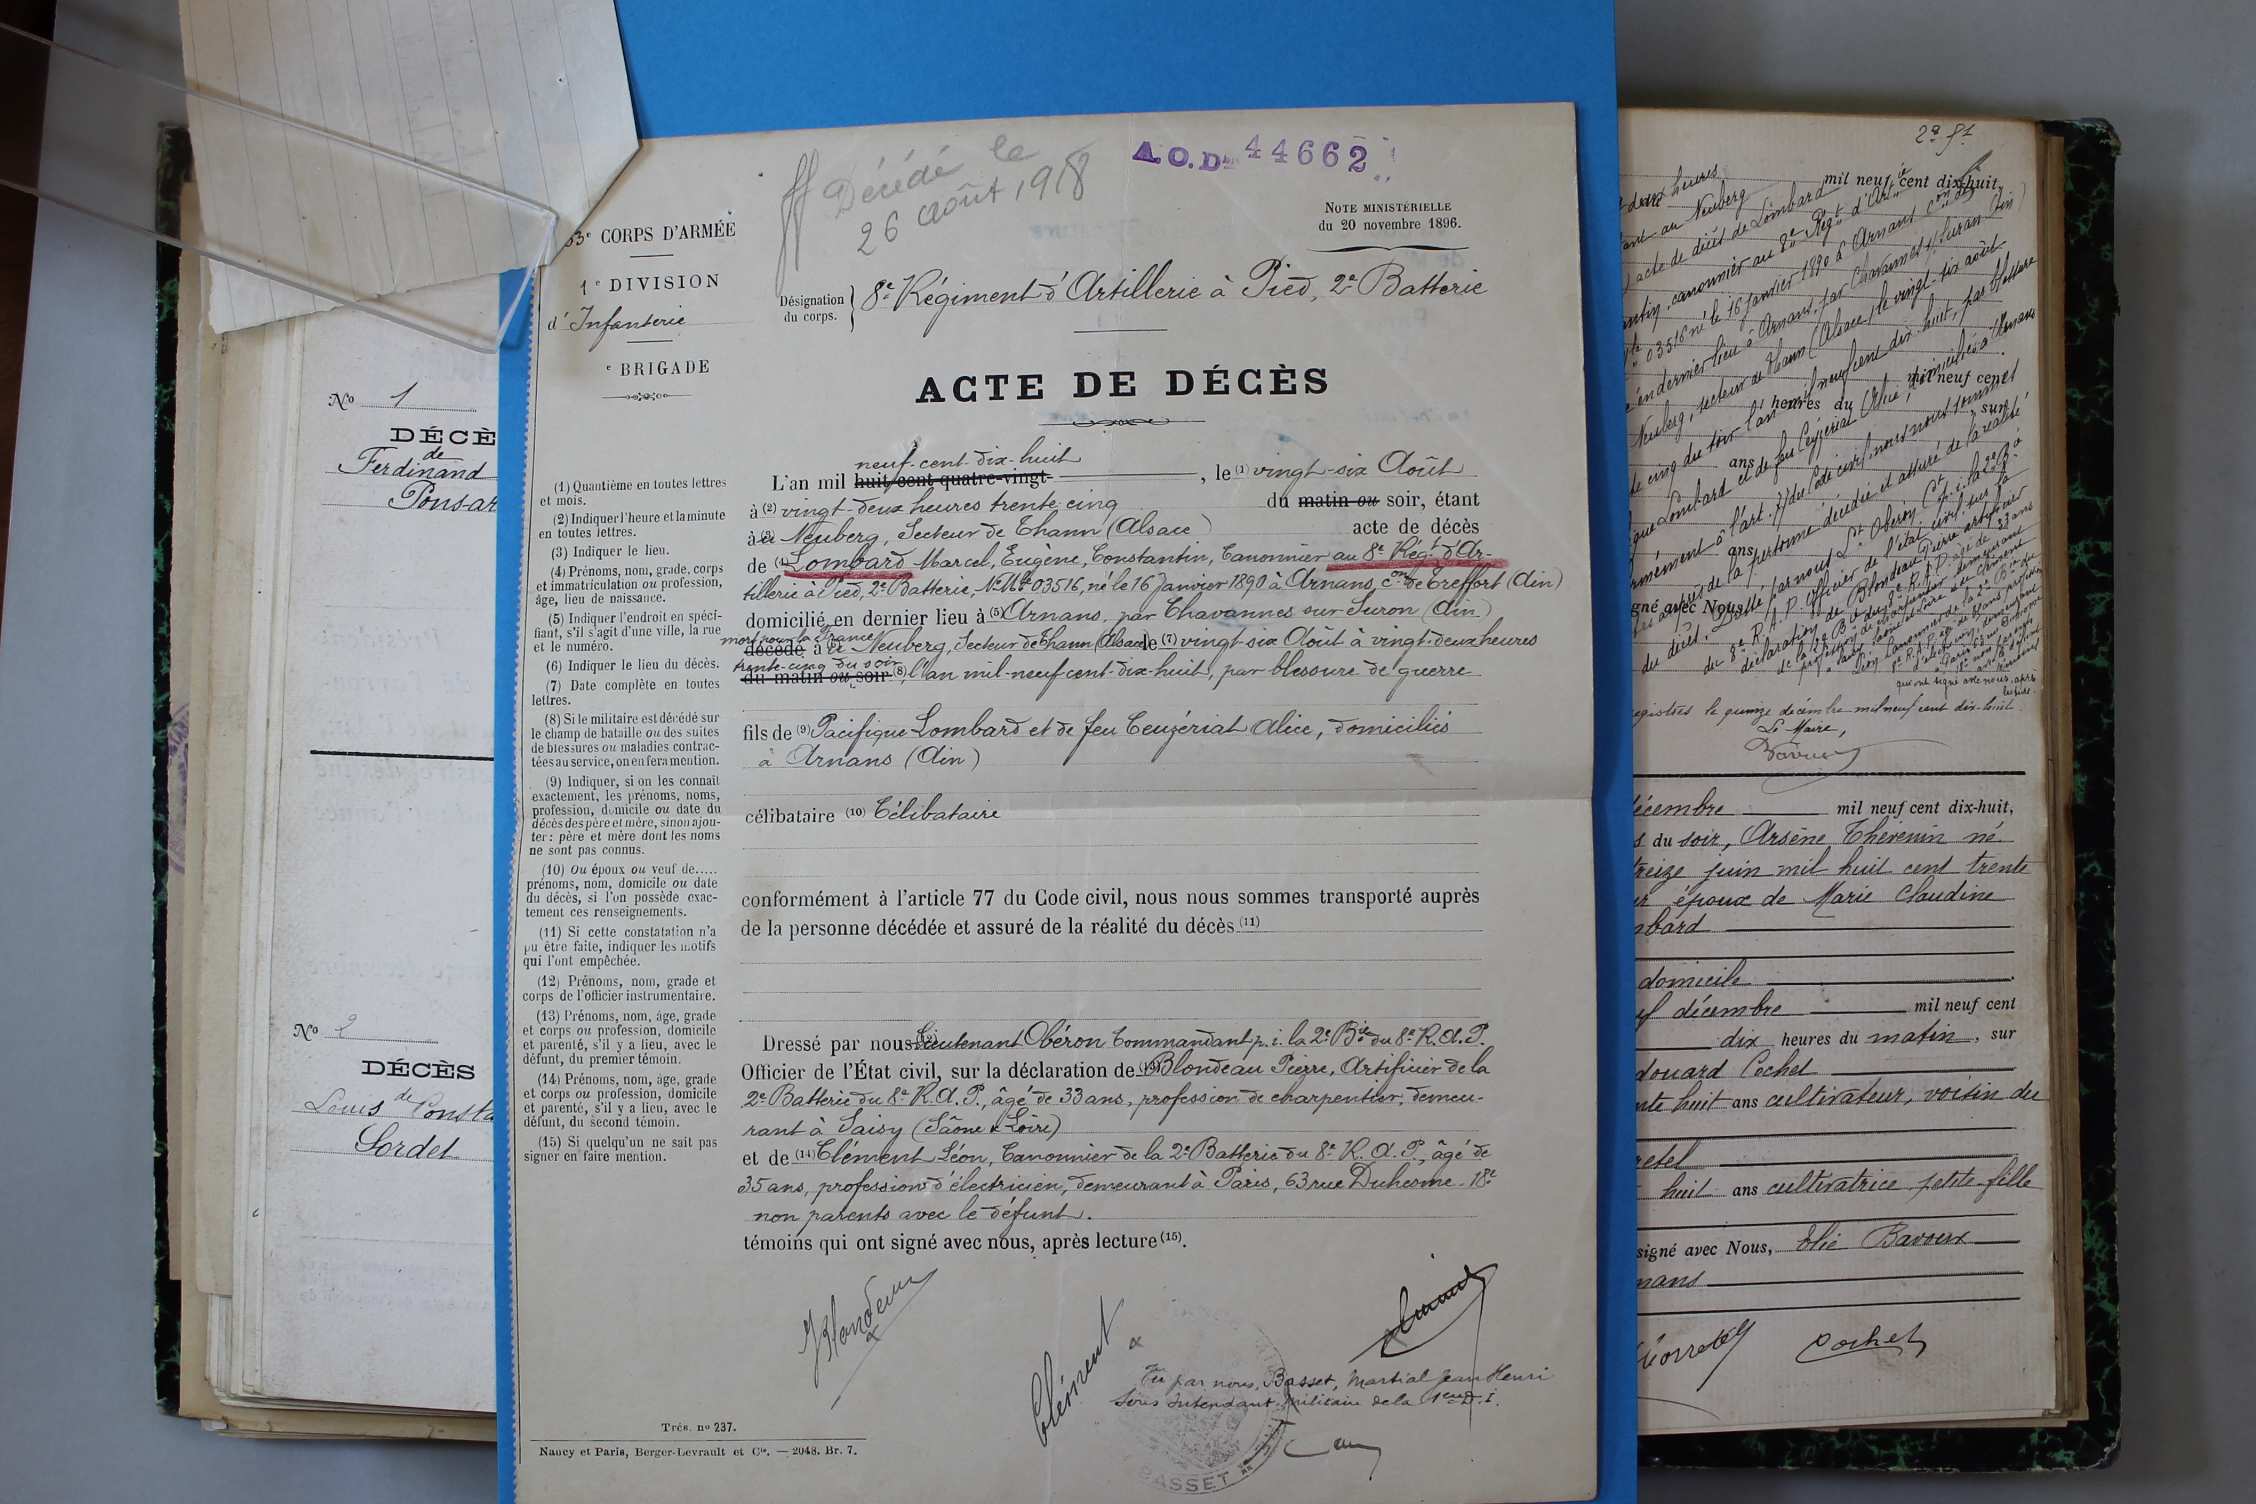 Nº 1
DÉCÈ
de
Ferdinand
Ponsar
Nº 2
DÉCÈS
de
Louis Consta
Sordet
ff Décédé le
26 Août 1918
A.O.D 44662
NOTE MINISTÉRIELLE
du 20 novembre 1896.
53e CORPS D'ARMÉE
1e DIVISION
d'Infanterie
e BRIGADE
Désignation du corps. 8e Régiment d'Artillerie à Pied, 2e Batterie
ACTE DE DÉCÈS
neuf-cent-dix-huit
L'an mil huit cent quatre-vingt- , le (1) vingt-six Août
à (2) vingt-deux heures trente-cinq du matin ou soir, étant
à (3) Neuberg, Secteur de Thann (Alsace) acte de décès
de (4) Lombard Marcel, Eugène, Constantin, Canonnier au 8e Régt d'Ar-
tillerie à Pied, 2e Batterie, No Mle 03516, né le 16 Janvier 1890 à Arnans, con de Treffort (Ain)
domicilié en dernier lieu à (5) Arnans, par Chavannes sur Suron (Ain)
mort pour la France
décédé à (6) Neuberg, Secteur de Thann (Alsace) le (7) vingt-six Août à vingt-deux heures
trente-cinq du soir
du matin ou soir (8), l'an mil-neuf cent-dix-huit, par blessure de guerre
fils de (9) Pacifique Lombard et de feu Ceuzériat Alice, domiciliés
à Arnans (Ain)
célibataire (10) Célibataire
conformément à l'article 77 du Code civil, nous nous sommes transporté auprès
de la personne décédée et assuré de la réalité du décès (11)
Dressé par nous (12) Lieutenant Obéron Commandant p.i. la 2e Bie du 8e R.A.P.
Officier de l'État civil, sur la déclaration de (13) Blondeau Pierre, Artificier de la
2e Batterie du 8e R.A.P., âgé de 33 ans, profession de charpentier, demeu-
rant à Saisy (Saône & Loire)
et de (14) Clément Léon, Canonnier de la 2e Batterie du 8e R.A.P., âgé de
35 ans, profession d'électricien, demeurant à Paris, 63 rue Duhesme - 18e
non parents avec le défunt.
témoins qui ont signé avec nous, après lecture (15).
Blondeau
Clément
Vu par nous, Basset, Martial Jean Henri
Sous Intendant militaire de la 1ere D.I.
BASSET
(1) Quantième en toutes lettres
et mois.
(2) Indiquer l'heure et la minute
en toutes lettres.
(3) Indiquer le lieu.
(4) Prénoms, nom, grade, corps
et immatriculation ou profession,
âge, lieu de naissance.
(5) Indiquer l'endroit en spéci-
fiant, s'il s'agit d'une ville, la rue
et le numéro.
(6) Indiquer le lieu du décès.
(7) Date complète en toutes
lettres.
(8) Si le militaire est décédé sur
le champ de bataille ou des suites
de blessures ou maladies contrac-
tées au service, on en fera mention.
(9) Indiquer, si on les connaît
exactement, les prénoms, noms,
profession, domicile ou date du
décès des père et mère, sinon ajou-
ter : père et mère dont les noms
ne sont pas connus.
(10) Ou époux ou veuf de.....
prénoms, nom, domicile ou date
du décès, si l'on possède exac-
tement ces renseignements.
(11) Si cette constatation n'a
pu être faite, indiquer les motifs
qui l'ont empêchée.
(12) Prénoms, nom, grade et
corps de l'officier instrumentaire.
(13) Prénoms, nom, âge, grade
et corps ou profession, domicile
et parenté, s'il y a lieu, avec le
défunt, du premier témoin.
(14) Prénoms, nom, âge, grade
et corps ou profession, domicile
et parenté, s'il y a lieu, avec le
défunt, du second témoin.
(15) Si quelqu'un ne sait pas
signer en faire mention.
Trés. no 237.
Nancy et Paris, Berger-Levrault et Cie. — 2048. Br. 7.
deux heures mil neuf cent dix-huit,
au Neuberg
acte de décès de Lombard
canonnier au 8e Régt d'Artie
03516 né le 16 janvier 1890 à Arnans
en dernier lieu à Arnans, par Chavannes s/ Suran (Ain)
Neuberg, secteur de Thann (Alsace) le vingt-six août
cinq du soir l'an mil neuf cent dix-huit, par blessure
mil neuf cent
heures du
sur
ans
Lombard et de feu Ceyzeriat Alice, domiciliés à Arnans
à l'art. 77 du Code civil, nous nous sommes
ans
de la personne décédée et assuré de la réalité
gné avec Nous,
du décès. par nous Lt Oberon Ct p.i. la 2e B.
du 8e R.A.P. officier de l'état civil sur la
déclaration de Blondeau Pierre artificier
qui ont signé avec nous, après
lecture.
registres le quinze décembre mil neuf cent dix-huit.
Le Maire,
écembre mil neuf cent dix-huit,
du soir, Arsène Thévenin né
treize juin mil huit cent trente
époux de Marie Claudine
mbard
domicile
décembre mil neuf cent
dix heures du matin, sur
douard Cochet
nte huit ans cultivateur, voisin du
huit ans cultivatrice petite-fille
signé avec Nous, Elie Bavoux
nans
Cochet